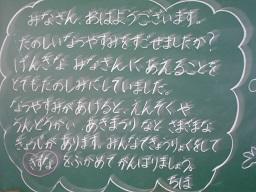 みなさん、おはようございます。
たのしいなつやすみをすごせましたか？
げんきな みなさんに あえることを
とてもたのしみにしていました。
なつやすみがあけると、えんそくや
うんどうかい、あきまつり など さまざまな
ぎょうじが あります。みんなできょうりょくをして
きずな をふかめて がんばりましょう。
ちほ